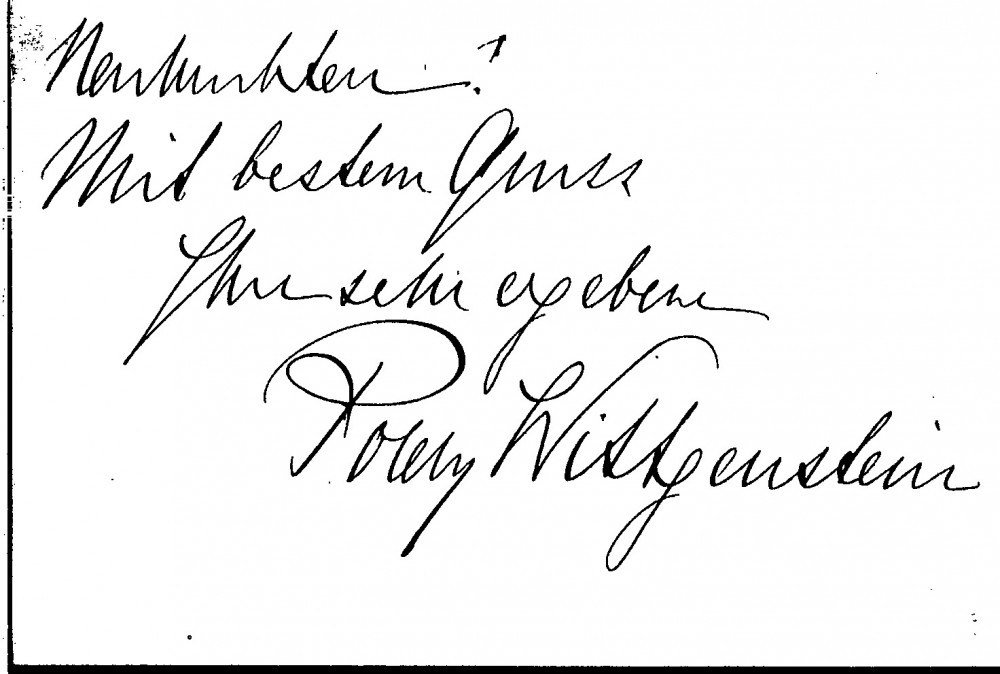 Mit bestem Gruss
Ihre sehr ergebene
Poldy Wittgenstein